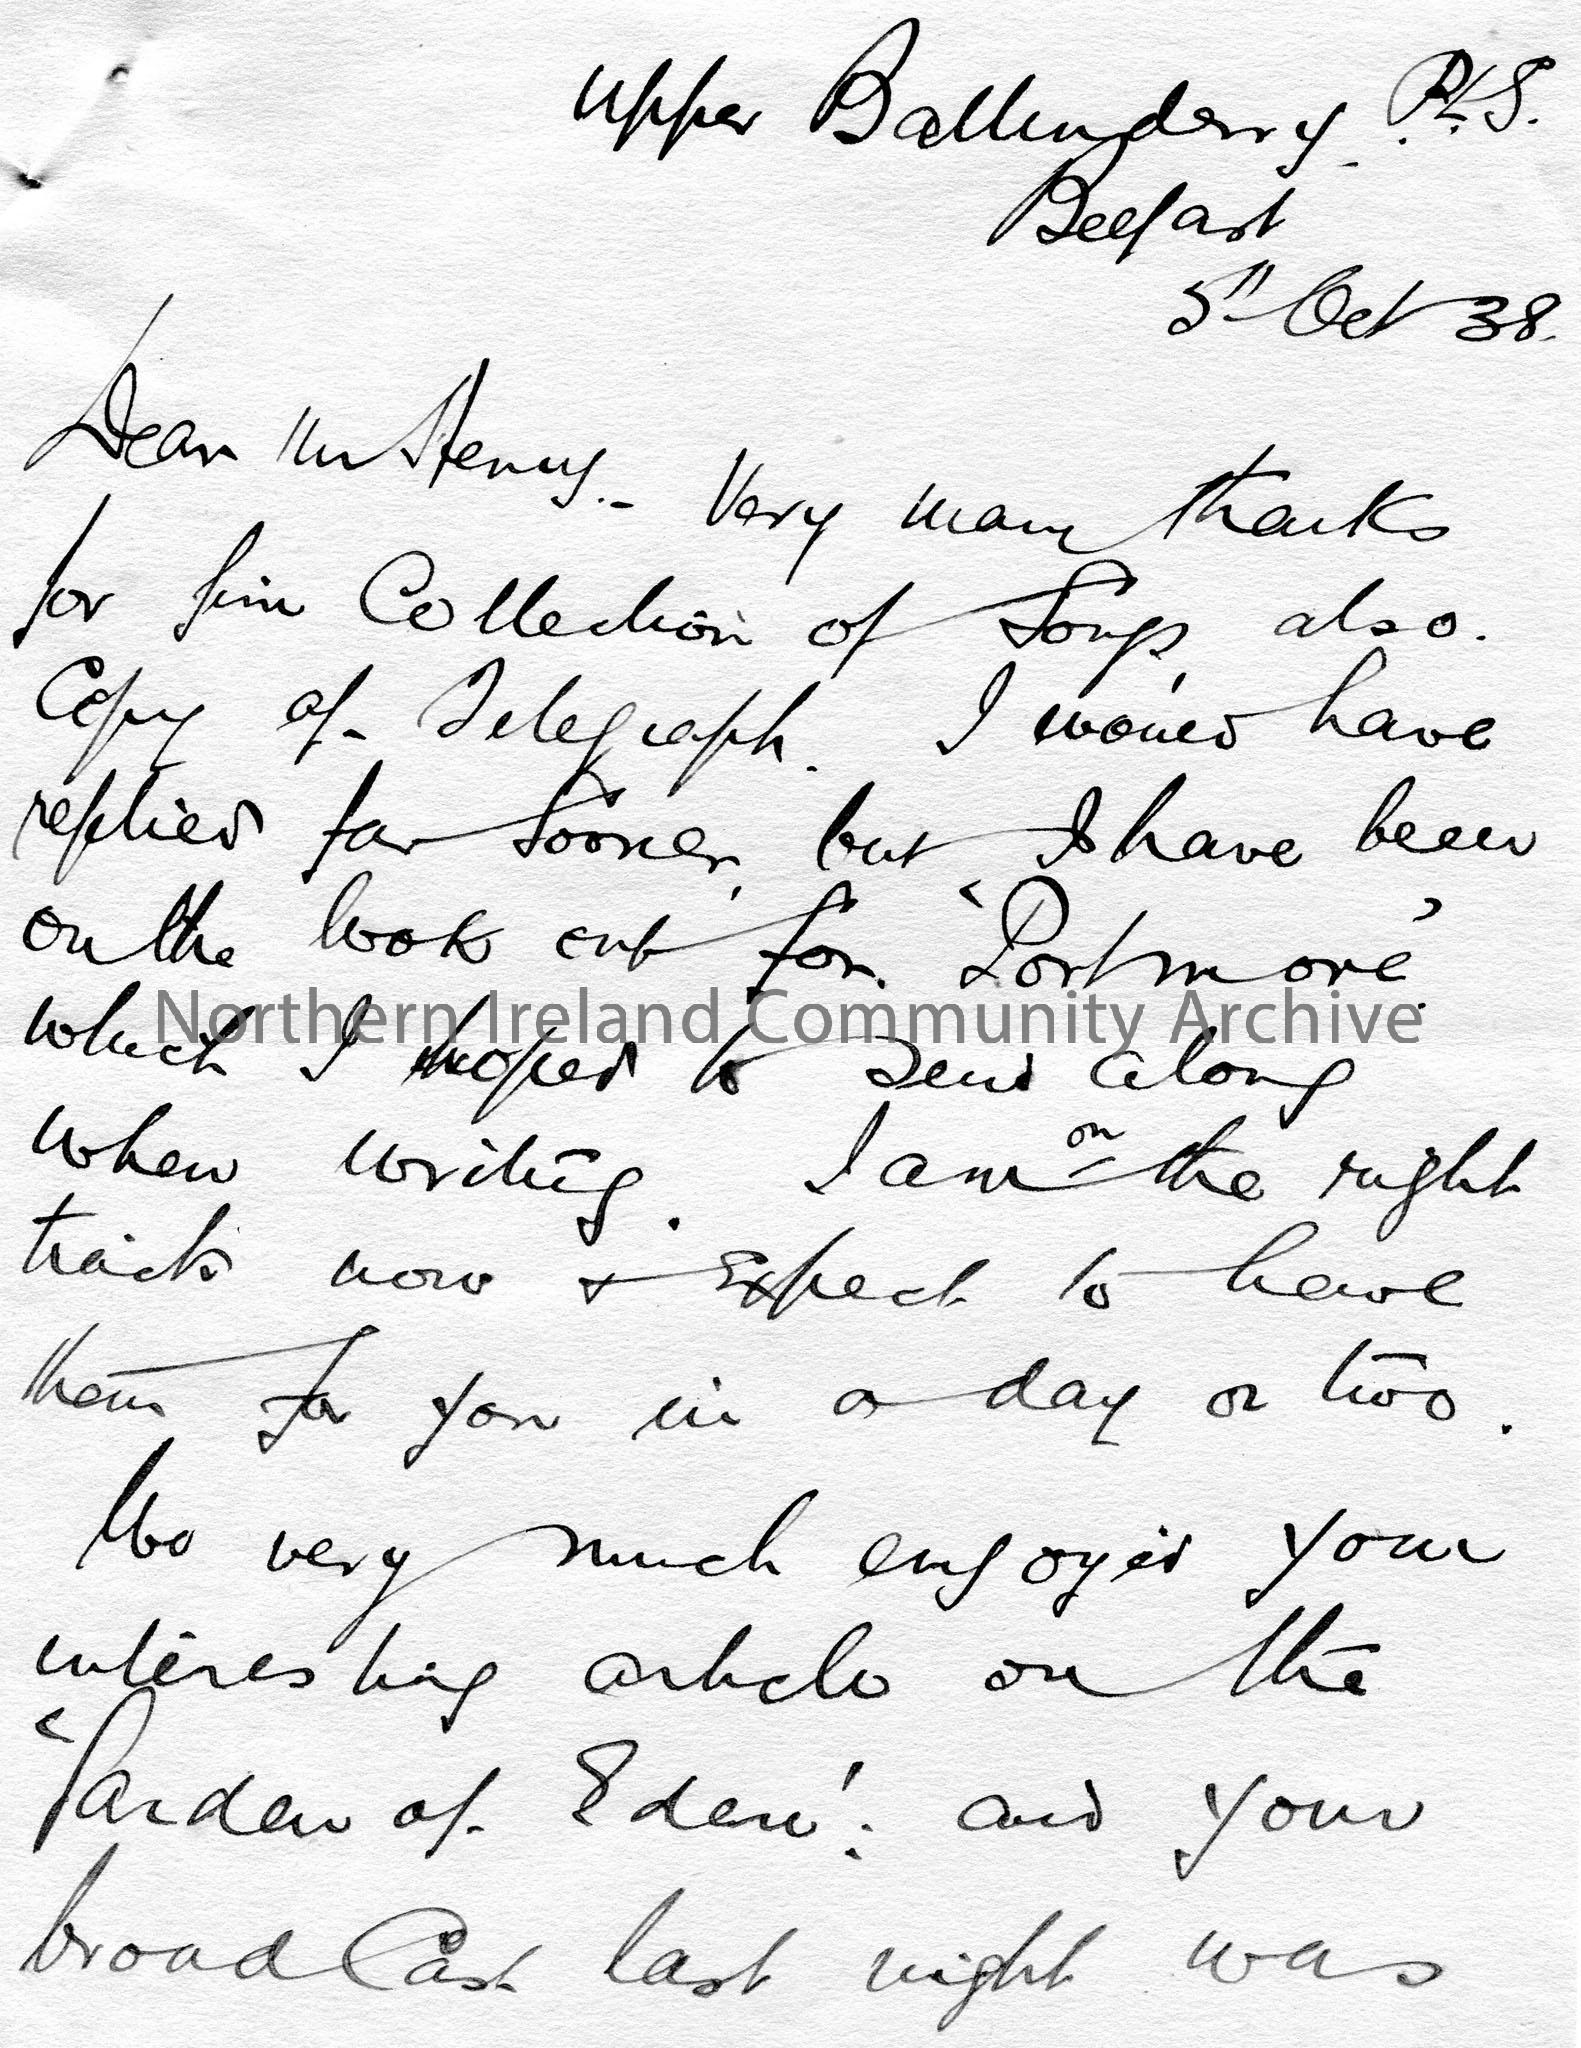 Upper Ballinderry P.S.
Belfast
5th Oct 38.
Dear Mr Henry.- Very many thanks
for fine Collection of Songs, also
Copy of Telegraph. I would have
replied far sooner, but I have been
on the look out for "Portmore"
Northern Ireland Community Archive
which I hoped to send along
when writing. I am on the right
track now & expect to have
them for you in a day or two.
We very much enjoyed your
interesting article on the
"Garden of Eden": and your
broad Cast last night was